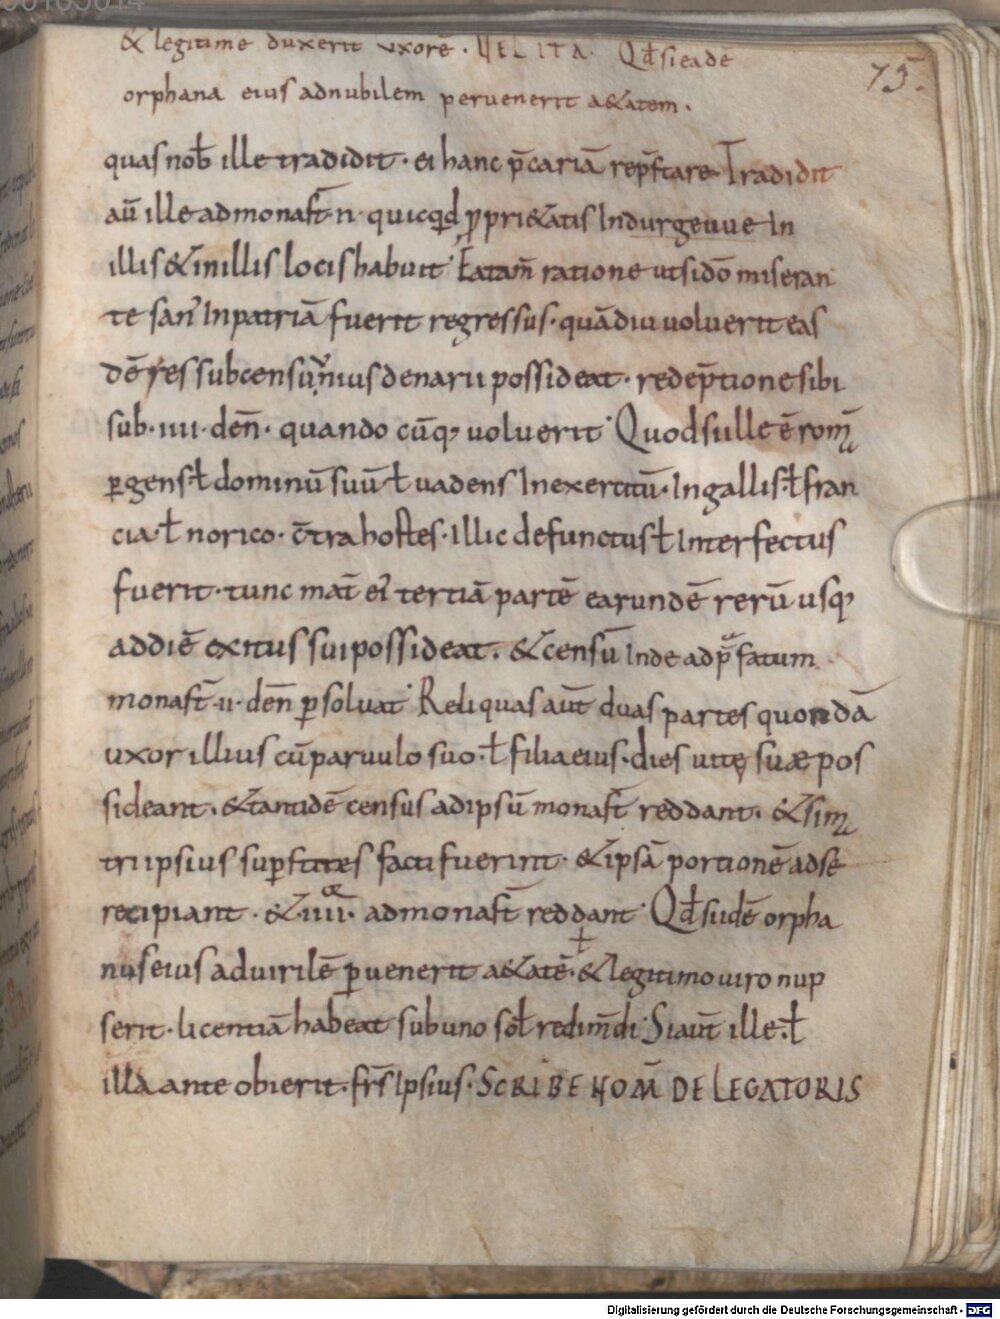 & legitime duxerit uxorē · VEL ITA · Qd̄ si eadē
orphana eius ad nubilem pervenerit a&atem ·
75.
quas nob̄ ille tradidit · ei hanc p̄cariā rep̄stare · Tradidit
aū ille ad monast̄ · n · quicqd̄ ꝓpri&atis In durgeuue In
illis & in illis locis habuit · Ea tam̄ ratione ut si dō miseran
te san' In patriā fuerit regressus · quādiu voluerit eas
dē res sub censu unius denarii possideat · redēptione sibi
sub · IIII · den̄ · quando cūq; voluerit · Quod si ille ē rom̄
ꝑgens ł dominū suū ł vadens In exertitū · In gallis ł fran
cia · ł norico · c̄tra hostes · Illic defunctus ł Interfectus
fuerit · tunc mat̄ ei' tertiā partē earundē rerū usq;
ad diē exitus sui possideat · & censū Inde ad p̄fatum
monast̄ · II · den̄ ꝑsoluat · Reliquas aūt duas partes quondā
uxor illius cū parvulo suo · ł filia eius · dies vitę suæ pos
sideant · & tantidē census ad ipsū monast̄ reddant · & si m̄
tri ipsius suꝑstites facti fuerint · & ipsā portionē ad sē
recipiant · & IIII · or ad monast̄ reddant · Qd̄ si idē orpha
nus eius ad virilē ꝑvenerit a&atē · & legitimo viro nup
serit · licentiā habeat sub uno sol̄ redim̄di · Si aūt ille · ł
illa ante obierit · frs̄ Ipsius · SCRIBE NOM̄ DELEGATORIS
Digitalisierung gefördert durch die Deutsche Forschungsgemeinschaft · DFG